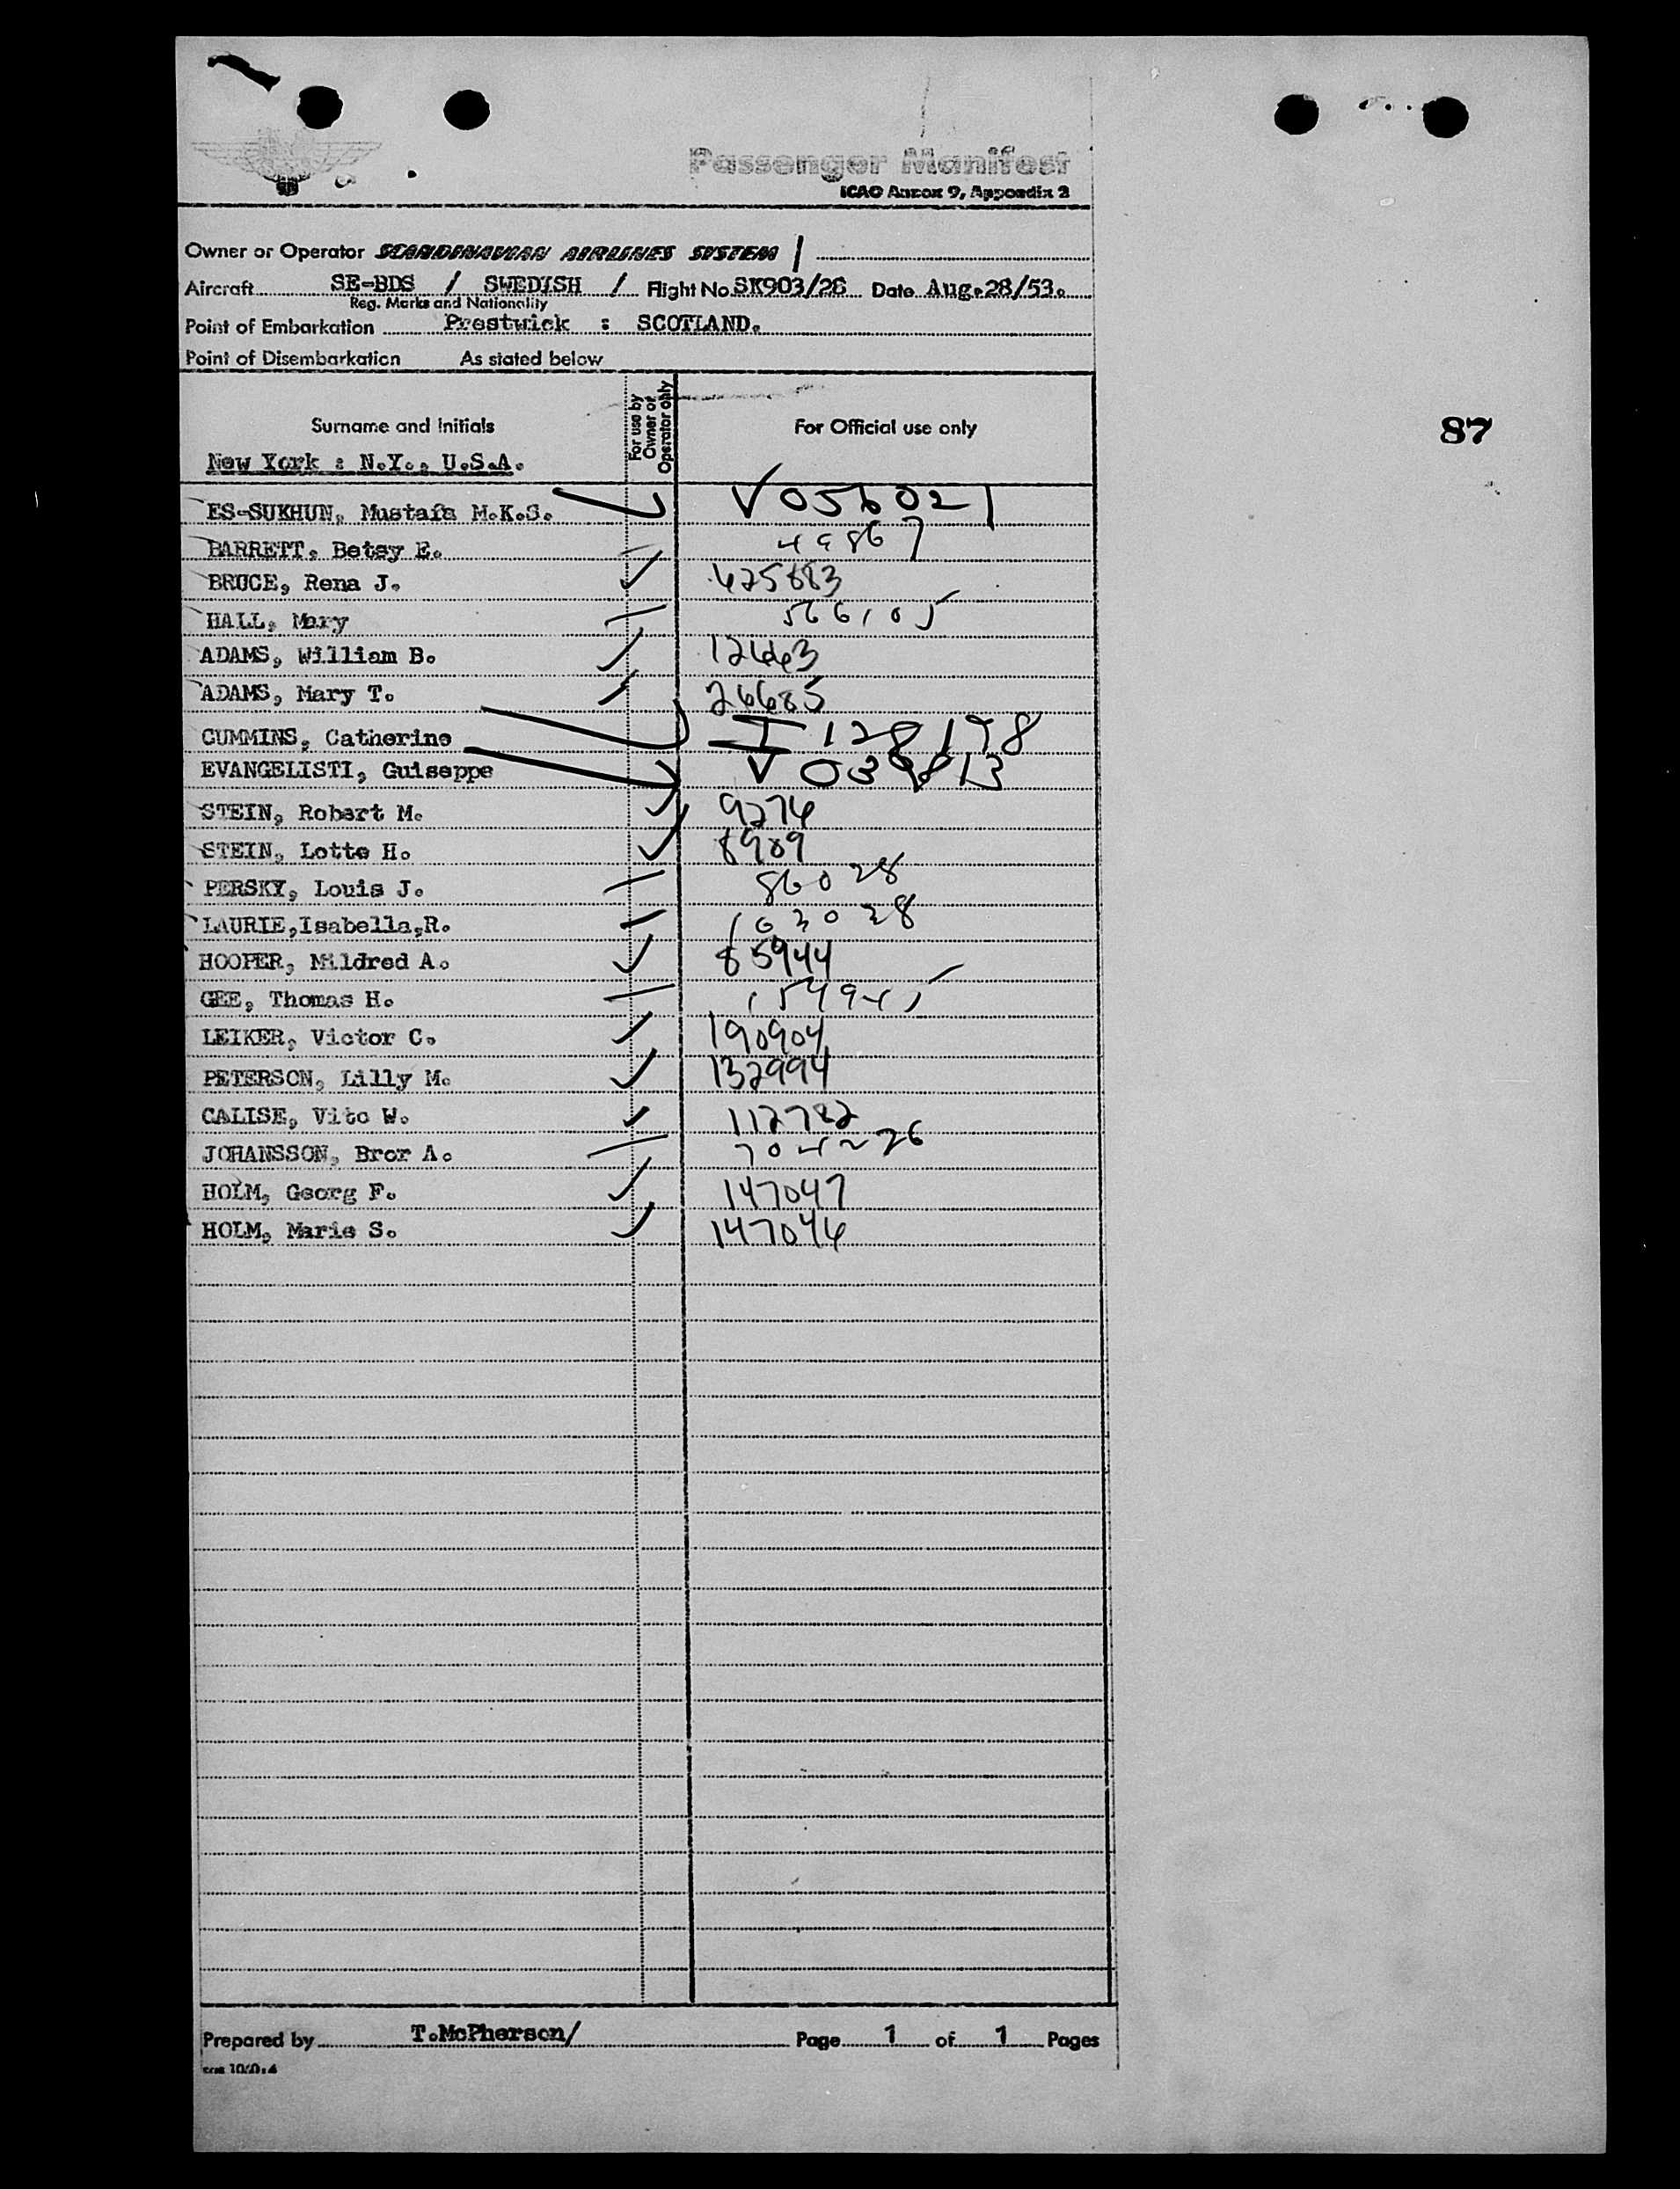 Passenger Manifest
ICAO Annex 9, Appendix 2
Owner or Operator SCANDINAVIAN AIRLINES SYSTEM
Aircraft SE-BDS / SWEDISH / Flight No. SK903/28 Date Aug.28/53.
Reg. Marks and Nationality
Point of Embarkation Prestwick : SCOTLAND.
Point of Disembarkation As stated below
Surname and Initials For use by Owner or Operator only For Official use only
87
New York : N.Y., U.S.A.
ES-SUKHUN, Mustafa M.K.S. V056021
BARRETT. Betsy E. 49867
BRUCE, Rena J. 425883
HALL, Mary 566105
ADAMS, William B.
ADAMS, Mary T. 26685
CUMMINS, Catherine I 128198
EVANGELISTI, Guiseppe V 039813
STEIN, Robert M. 9274
STEIN, Lotte H. 8989
PERSKY, Louis J. 86028
LAURIE,Isabella,R. 163028
HOOPER, Mildred A. 85944
GEE, Thomas H.
LEIKER, Victor C. 190904
PETERSON, Lilly M. 132994
CALISE, Vito W. 112782
JOHANSSON, Bror A.
HOLM, Georg F. 147047
HOLM, Marie S. 147046
Prepared by T.McPherson/ Page 1 of 1 Pages